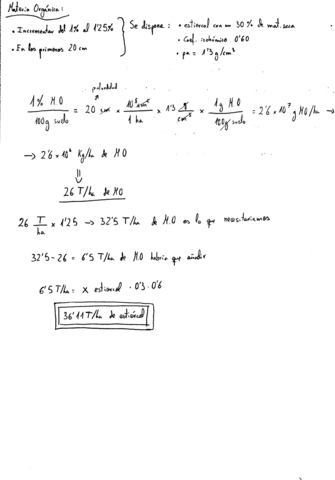 Materia Orgánica:
• Incrementar del 1% al 1'25%
• En los primeros 20 cm
Se dispone:
• estiercol con un 30% de mat. seca
• Coef. isohúmico 0'60
• ρa = 1'3 g/cm³
profundidad
1% M.O / 100g suelo = 20 cm × 10⁸ cm² / 1 ha × 1'3 g / cm³ × 1g M.O / 100g suelo = 2'6 × 10⁷ g MO/ha →
→ 2'6 × 10⁴ Kg/ha de M.O
⇓
26 T/ha de MO
26 T/ha × 1'25 → 32'5 T/ha de M.O es lo que necesitariamos
32'5 - 26 = 6'5 T/ha de M.O habria que añadir
6'5 T/ha = x estiercol · 0'3 · 0'6
36'11 T/ha de estiércol